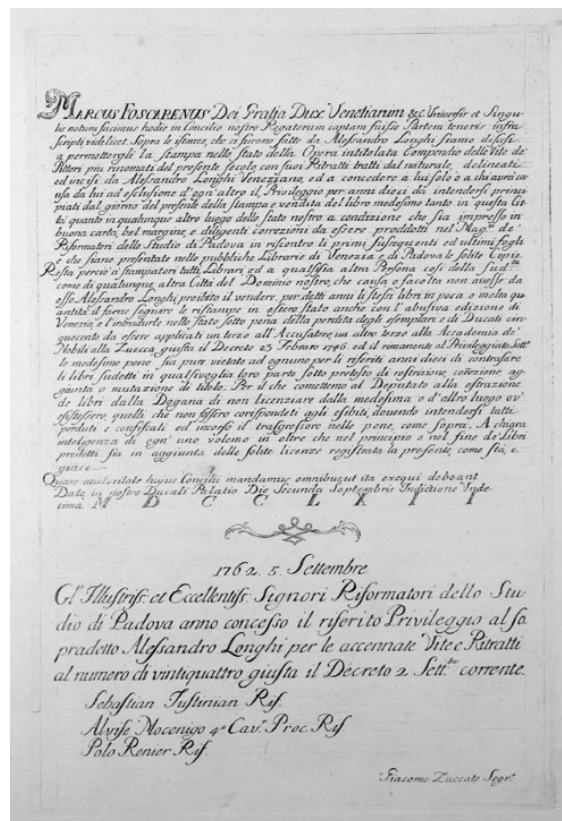 MARCUS FOSCARENUS Dei Gratia Dux Venetiarum &c. Universis et Singu-
lis notum facimus hodie in Concilio nostro Rogatorum captam fuisse Partem tenoris infra-
scripti videlicet. Sopra le istanze, che ci furono fatte da Alessandro Longhi siamo discesi
a permettergli la stampa nello stato della Opera intitolata Compendio delle Vite de'
Pittori più rinomati del presente secolo con suoi Ritratti tratti dal naturale, delineati
ed incisi da Alessandro Longhi Veneziano, ed a concedere a lui solo o a chi avrà ca-
usa da lui ad esclusione d'ogn'altro il Privileggio per anni dieci da intendersi princi
piati dal giorno del presente della stampa e vendita del libro medesimo tanto in questa Cit-
tà quanto in qualunque altro luogo dello Stato nostro a condizione che sia impresso in
buona carta, bel margine, e diligenti correzioni da essere prodotti nel Mag.to de'
Riformatori dello Studio di Padova in riscontro li primi susseguenti ed ultimi fogli
e che siano presentate nelle pubbliche Librarie di Venezia, e di Padova le solite Copie.
Resta perciò a' stampatori tutti, Librari ed a qualsisia altra Persona così della sud.ta
come di qualunque altra Città del Dominio nostro, che causa o facoltà non avesse da
esso Alessandro Longhi proibito il vendere, per detti anni li stessi libri in poca o molta qu-
antità il farne seguire le ristampe in estero stato anche con l'abusiva edizione di
Venezia, e l'introdurle nello stato sotto pena della perdita degli esemplari e di Ducati cin-
quecento da essere applicati un terzo all'Accusatore, un altro terzo alla Accademia de'
Nobili alla Zuecca giusta il Decreto 23 Febraro 1746. ed il rimanente al Privileggiato. Sott'
le medesime pene sia pur vietato ad ognuno per li riferiti anni dieci di contrafare
li libri sudetti in qualsivoglia loro parte sotto pretesto di refrizione, correzione, ag-
giunta o mutazione di titolo. Per il che comettemo al Deputato alla estrazione
de libri dalla Dogana di non licenziare dalla medesima o d'altro luogo ov'
esistessero, quelli che non fossero corispondeti agli esibiti, dovendo intendersi tutti
perduti e confiscati ed' incorso il trasgressore nelle pene, come sopra. A chiara
inteligenza di ogn' uno volemo in oltre che nel principio o nel fine de' Libri
predetti sia in aggiunta delle solite licenze registrata la presente, come stà, e
giace.
Quare auctoritate hujus Concilii mandamus omnibus ut ita exequi debeant
Date in nostro Ducali Palatio Die Secunda Septembris Indictione Unde-
cima M D C C L X I I
1762. 5. Settembre
Gl' Illustriss: et Eccellentiss: Signori Riformatori dello Stu
dio di Padova anno concesso il riferito Privileggio al so
pradetto Alessandro Longhi per le accennate Vite e Ritratti
al numero di vintiquattro giusta il Decreto 2 Sett.bre corrente.
Sebastian Justinian Rif.
Alvise Mocenigo 4º Cav.r Proc. Rif
Polo Renier Rif.
Giacomo Zuccato Segr.o